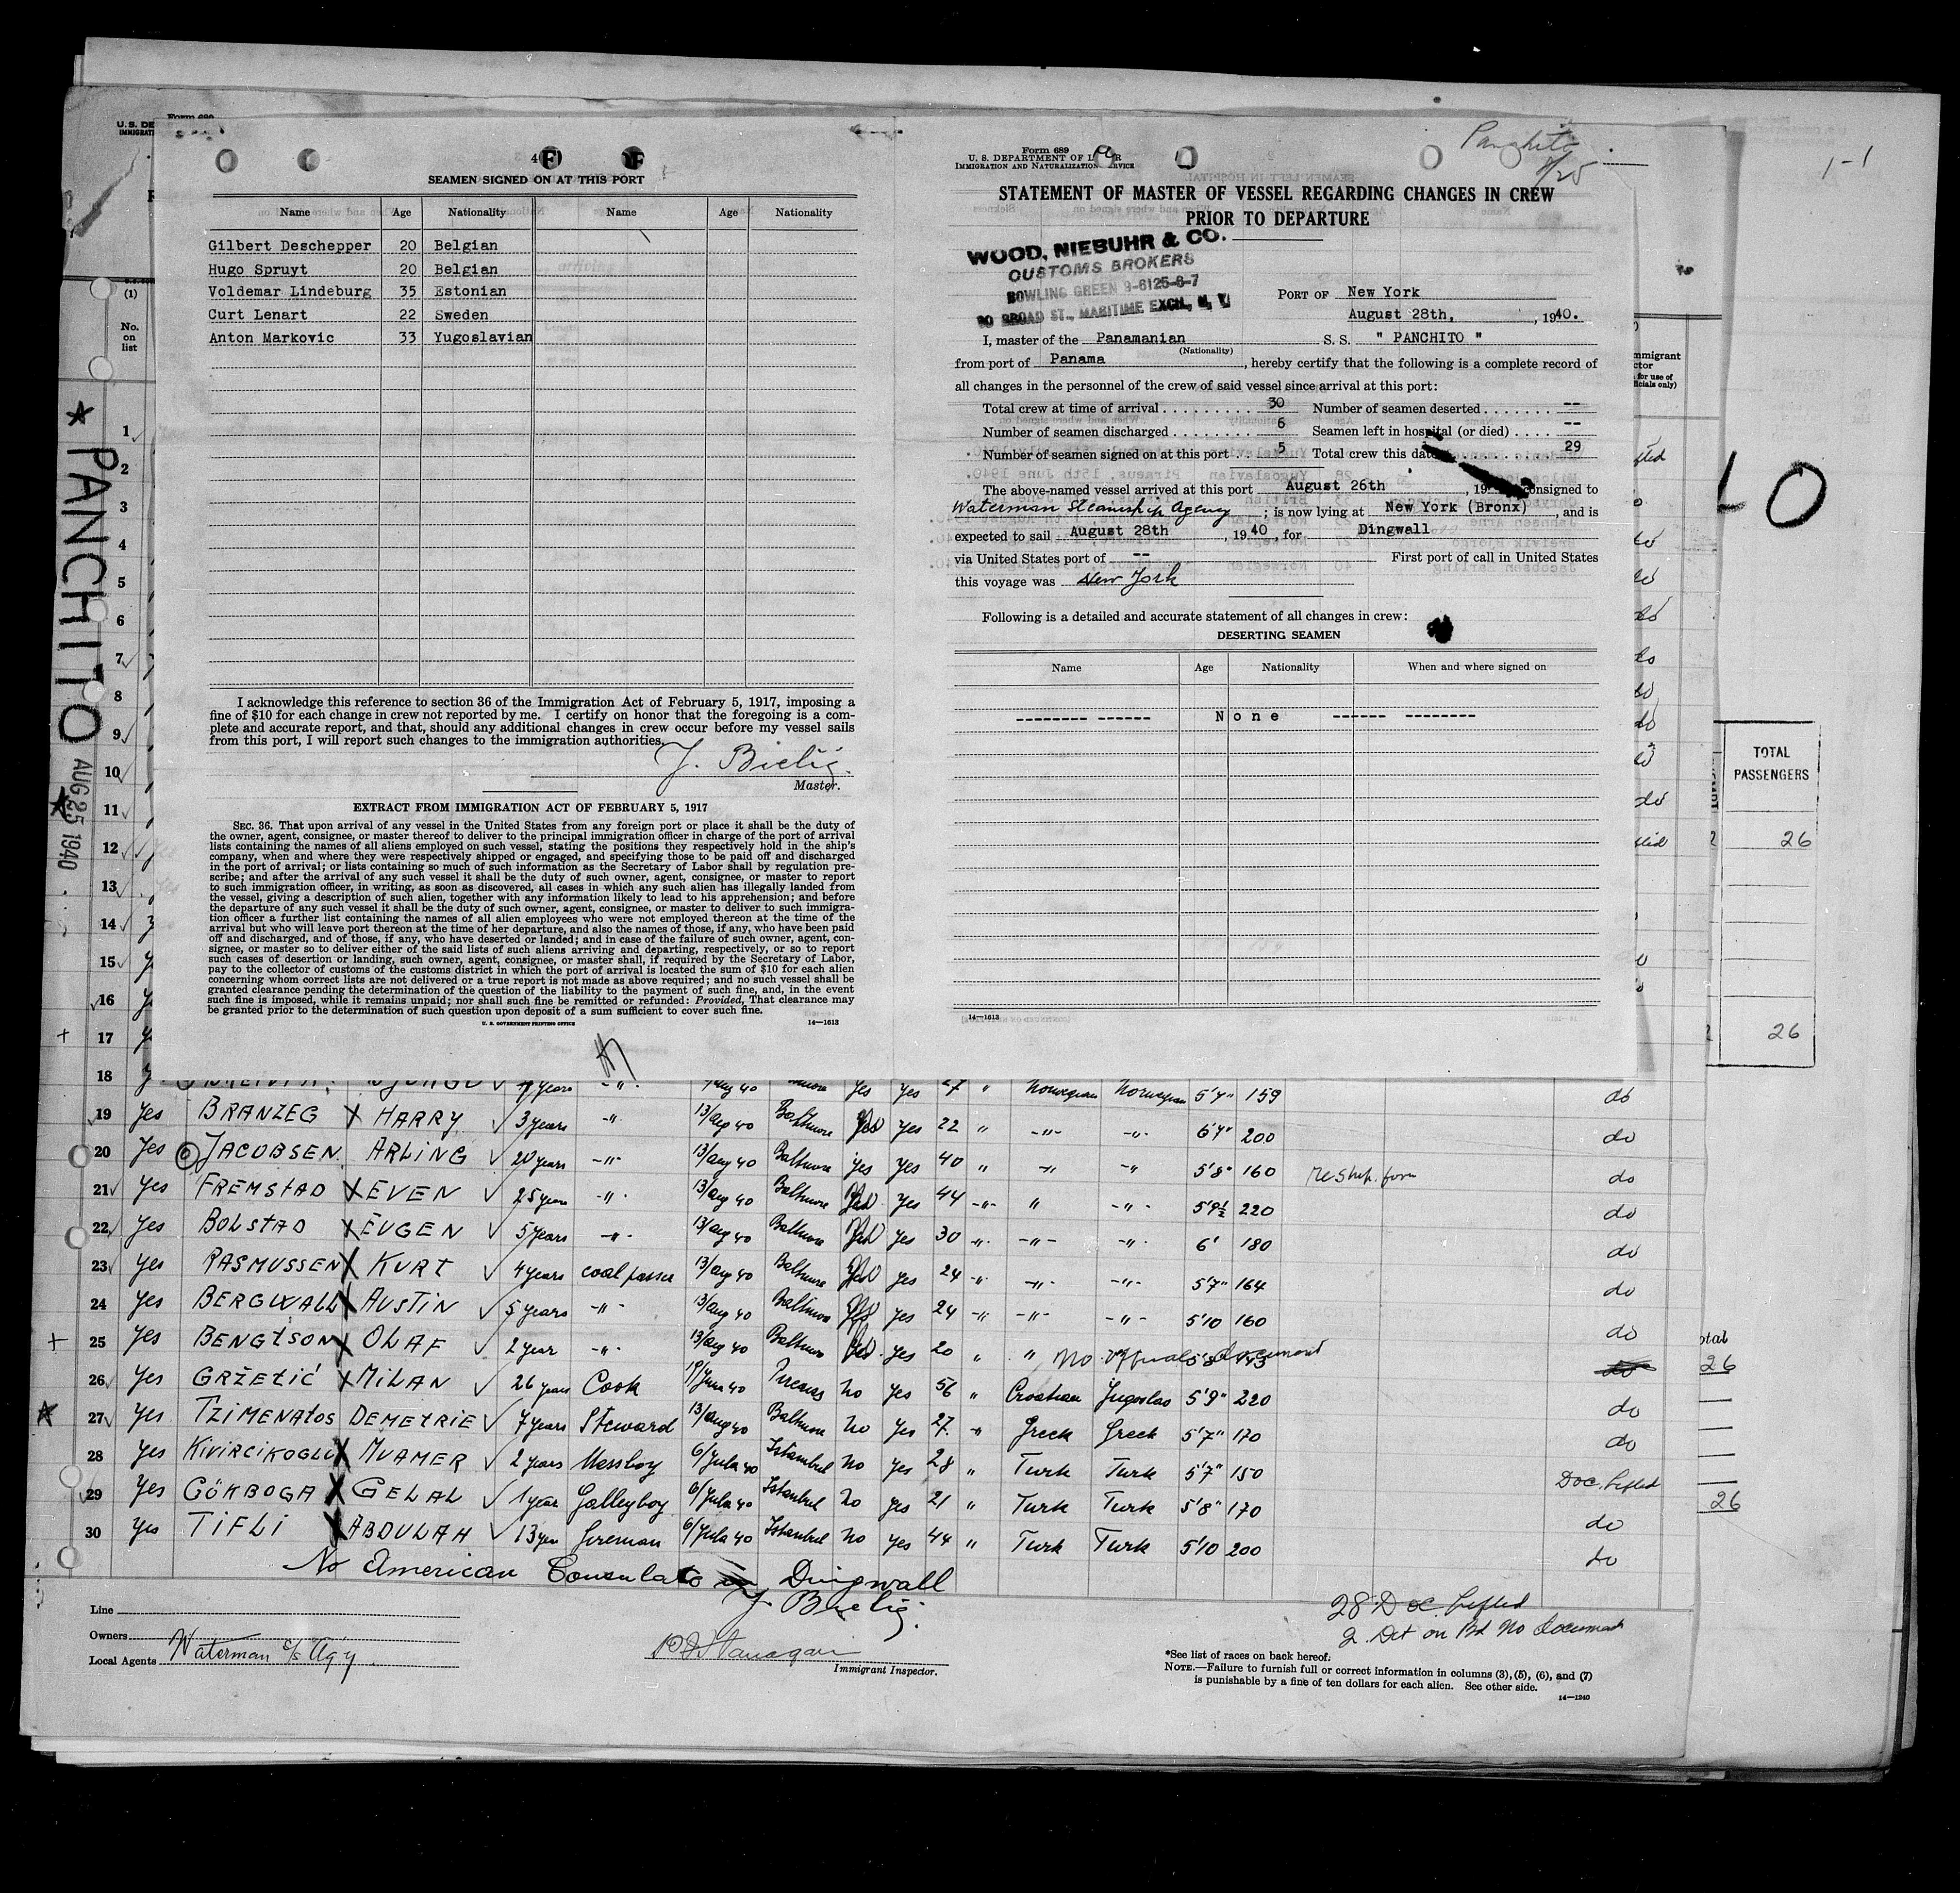 Form 689
U. S. DE
IMMIGRAT
(1)
No.
on
list
★ PANCHITO AUG 25 1940
1
2
3
4
5
6
7
8
9
10
11
12
13
14
15
16
17
18
4
SEAMEN SIGNED ON AT THIS PORT
Name Age Nationality Name Age Nationality
Gilbert Deschepper 20 Belgian
Hugo Spruyt 20 Belgian
Voldemar Lindeburg 35 Estonian
Curt Lenart 22 Sweden
Anton Markovic 33 Yugoslavian
I acknowledge this reference to section 36 of the Immigration Act of February 5, 1917, imposing a
fine of $10 for each change in crew not reported by me. I certify on honor that the foregoing is a com-
plete and accurate report, and that, should any additional changes in crew occur before my vessel sails
from this port, I will report such changes to the immigration authorities.
J. Bielig.
Master.
EXTRACT FROM IMMIGRATION ACT OF FEBRUARY 5, 1917
SEC. 36. That upon arrival of any vessel in the United States from any foreign port or place it shall be the duty of
the owner, agent, consignee, or master thereof to deliver to the principal immigration officer in charge of the port of arrival
lists containing the names of all aliens employed on such vessel, stating the positions they respectively hold in the ship's
company, when and where they were respectively shipped or engaged, and specifying those to be paid off and discharged
in the port of arrival; or lists containing so much of such information as the Secretary of Labor shall by regulation pre-
scribe; and after the arrival of any such vessel it shall be the duty of such owner, agent, consignee, or master to report
to such immigration officer, in writing, as soon as discovered, all cases in which any such alien has illegally landed from
the vessel, giving a description of such alien, together with any information likely to lead to his apprehension; and before
the departure of any such vessel it shall be the duty of such owner, agent, consignee, or master to deliver to such immigra-
tion officer a further list containing the names of all alien employees who were not employed thereon at the time of the
arrival but who will leave port thereon at the time of her departure, and also the names of those, if any, who have been paid
off and discharged, and of those, if any, who have deserted or landed; and in case of the failure of such owner, agent, con-
signee, or master so to deliver either of the said lists of such aliens arriving and departing, respectively, or so to report
such cases of desertion or landing, such owner, agent, consignee, or master shall, if required by the Secretary of Labor,
pay to the collector of customs of the customs district in which the port of arrival is located the sum of $10 for each alien
concerning whom correct lists are not delivered or a true report is not made as above required; and no such vessel shall be
granted clearance pending the determination of the question of the liability to the payment of such fine, and, in the event
such fine is imposed, while it remains unpaid; nor shall such fine be remitted or refunded: Provided, That clearance may
be granted prior to the determination of such question upon deposit of a sum sufficient to cover such fine.
U. S. GOVERNMENT PRINTING OFFICE 14—1613
Form 689
U. S. DEPARTMENT OF L R
IMMIGRATION AND NATURALIZATION SERVICE
Panchito
8/25
STATEMENT OF MASTER OF VESSEL REGARDING CHANGES IN CREW
PRIOR TO DEPARTURE
WOOD, NIEBUHR & CO.
CUSTOMS BROKERS
BOWLING GREEN 9-6125-6-7
80 BROAD ST., MARITIME EXCH., N. Y.
PORT OF New York
August 28th, , 1940.
I, master of the Panamanian S. S. " PANCHITO "
(Nationality)
from port of Panama , hereby certify that the following is a complete record of
all changes in the personnel of the crew of said vessel since arrival at this port:
Total crew at time of arrival 30 Number of seamen deserted --
Number of seamen discharged 6 Seamen left in hospital (or died) --
Number of seamen signed on at this port 5 Total crew this date 29
The above-named vessel arrived at this port August 26th , 19 consigned to
Waterman Steamship Agency ; is now lying at New York (Bronx) , and is
expected to sail August 28th , 1940 , for Dingwall
via United States port of -- First port of call in United States
this voyage was New York
Following is a detailed and accurate statement of all changes in crew:
DESERTING SEAMEN
Name Age Nationality When and where signed on
-------- ------ None ------ --------
14—1613
1-1
TOTAL
PASSENGERS
26
26
19 Yes BRANZEG X HARRY 3 years -"- 13/aug 40 Baltimore yes yes 22 " -"- -"- 6'4" 200 do
20 Yes JACOBSEN ARLING 20 years -"- 13/aug 40 Baltimore yes yes 40 " -"- -"- 5'8" 160 do
21 Yes FREMSTAD X EVEN 25 years -"- 13/aug 40 Baltimore yes 44 -"- " -"- 5'9½ 220 do
22 Yes BOLSTAD X EUGEN 5 years -"- 13/aug 40 Baltimore yes 30 -"- -"- -"- 6' 180 do
23 Yes RASMUSSEN X KURT 4 years coal passer 13/aug 40 Baltimore yes 24 -"- -"- -"- 5'7" 164 do
24 Yes BERGWALL X AUSTIN 5 years -"- 13/aug 40 Baltimore yes 24 -"- -"- -"- 5'10 160 do
25 Yes BENGTSON X OLAF 2 year -"- 13/aug 40 Baltimore yes 20 " " No official document
26 Yes GRŽETIĆ X MILAN 26 years Cook 19/June 40 Pireaus no yes 56 " Croatian Jugoslav 5'9" 220 do
27 Yes TZIMENATOS DEMETRIE 7 years Steward 13/aug 40 Baltimore no yes 27 " Greek Greek 5'7" 170 do
28 Yes KIVIRCIKOGLU X MUAMER 2 years Messboy 6/Jula 40 Istanbul no yes 28 " Turk Turk 5'7" 150 Doc. Lifted
29 Yes GÖKBOGA X GELAL 1 year Galleyboy 6/Jula 40 Istanbul no yes 21 " Turk Turk 5'8" 170 do
30 Yes TIFLI X ABDULAH 13 year fireman 6/Jula 40 Istanbul no yes 44 " Turk Turk 5'10 200 do
No American Consulate in Dingwall
J. Bielig.
otal
26
26
Line
Owners
Local Agents Waterman S/S Agy.
Immigrant Inspector.
28 Doc. Lifted
2 Det on Bd No Document
*See list of races on back hereof.
NOTE.—Failure to furnish full or correct information in columns (3), (5), (6), and (7)
is punishable by a fine of ten dollars for each alien. See other side.
14—1240